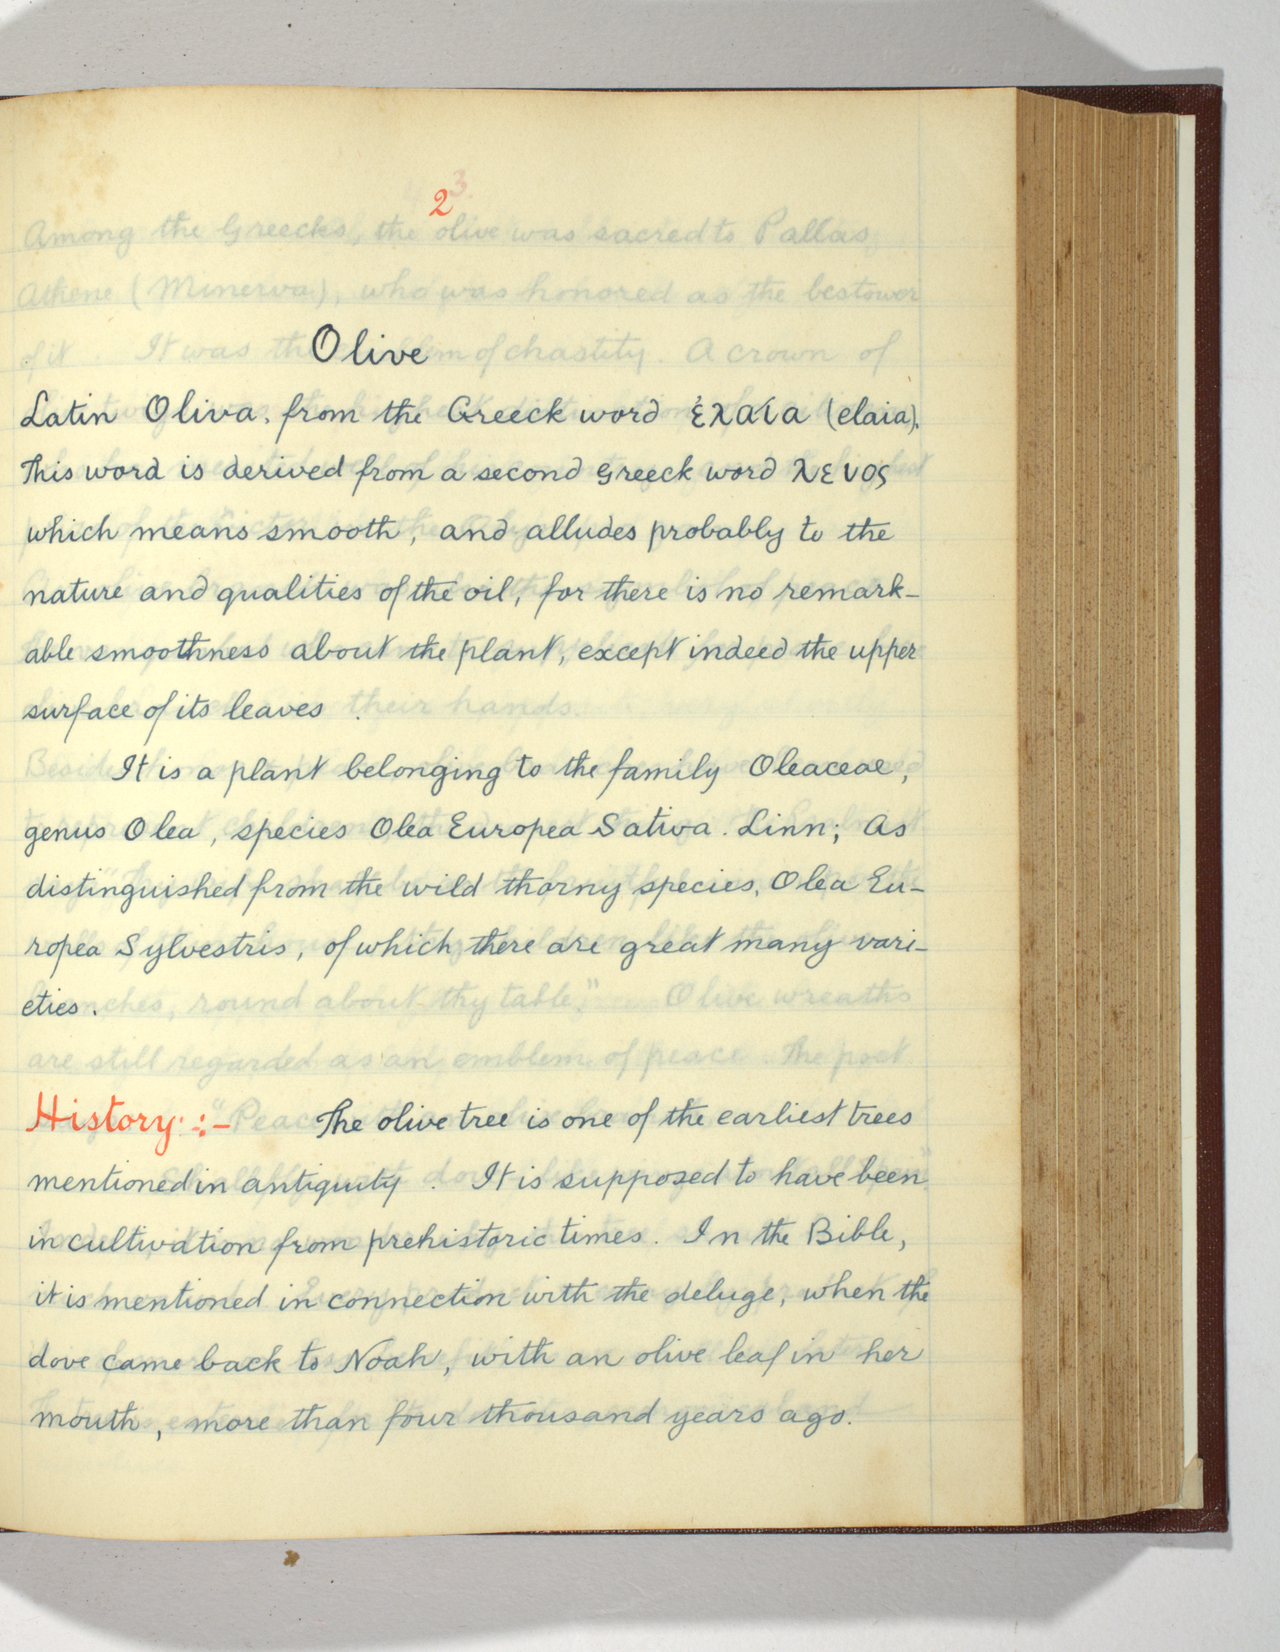 2
Olive
Latin Oliva, from the Greeck word ἐλαία (elaia).
This word is derived from a second Greeck word λενος
which means smooth, and alludes probably to the
nature and qualities of the oil, for there is no remark-
able smoothness about the plant, except indeed the upper
surface of its leaves.
It is a plant belonging to the family Oleaceae,
genus Olea, species Olea Europea Sativa. Linn; As
distinguished from the wild thorny species, Olea Eu-
ropea Sylvestris, of which there are great many vari-
eties.
History :- The olive tree is one of the earliest trees
mentioned in antiquity. It is supposed to have been
in cultivation from prehistoric times. In the Bible,
it is mentioned in connection with the deluge, when the
dove came back to Noah, with an olive leaf in her
mouth, more than four thousand years ago.